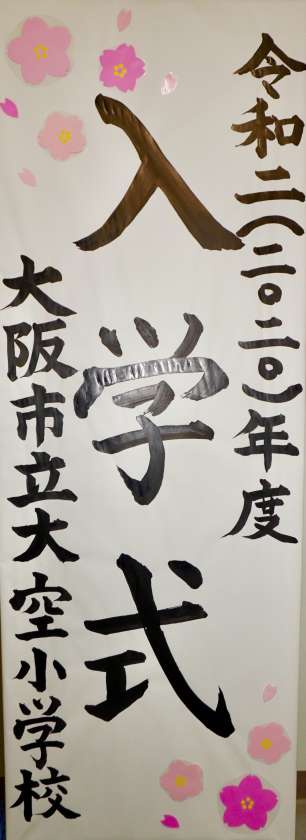 令和二(二〇二〇)年度
入学式
大阪市立大空小学校